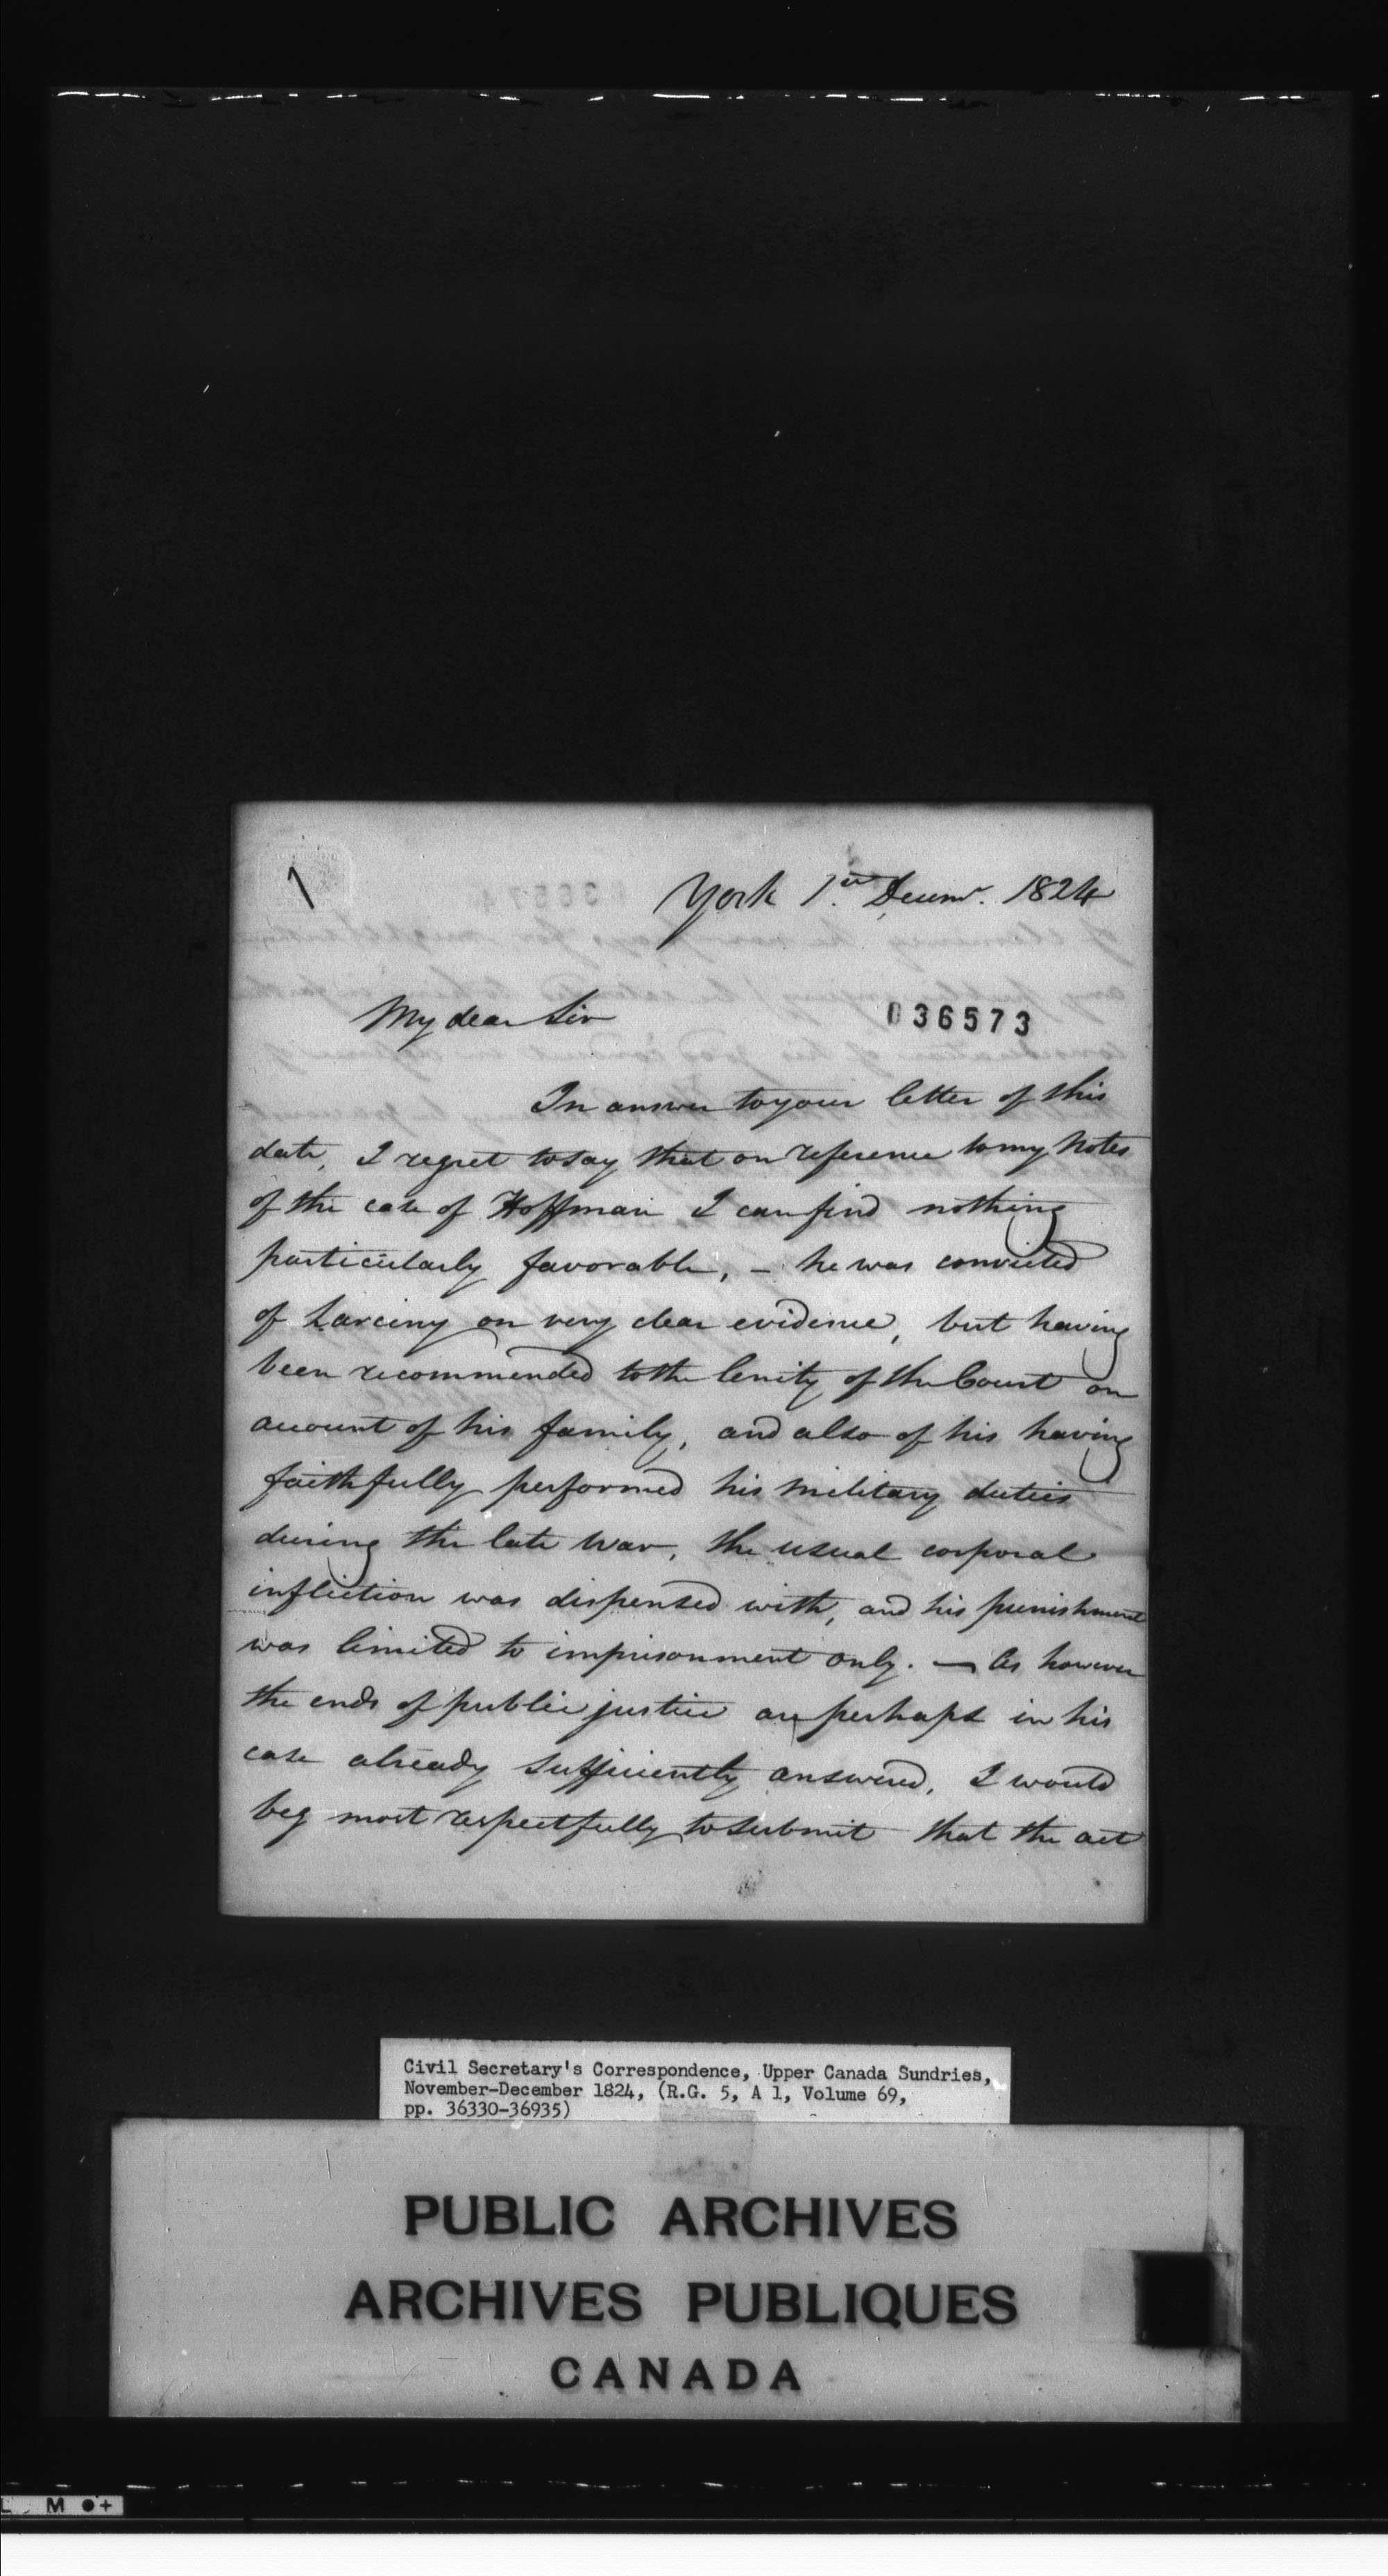 1
York 1st Decemr. 1824
My dear Sir
036573
In answer to your letter of this
date, I regret to say that on reference to my Notes
of the case of Hoffman I can find nothing
particularly favorable, – he was convicted
of Larceny on very clear evidence, but having
been recommended to the lenity of the Court on
account of his family, and also of his having
faithfully performed his Military duties
during the late War, the usual corporal
infliction was dispensed with, and his punishment
was limited to imprisonment only. — As however
the ends of public justice are perhaps in his
case already sufficiently answered, I would
beg most respectfully to submit that the act
Civil Secretary's Correspondence, Upper Canada Sundries,
November-December 1824, (R.G. 5, A 1, Volume 69,
pp. 36330-36935)
PUBLIC ARCHIVES
ARCHIVES PUBLIQUES
CANADA
L M ●+